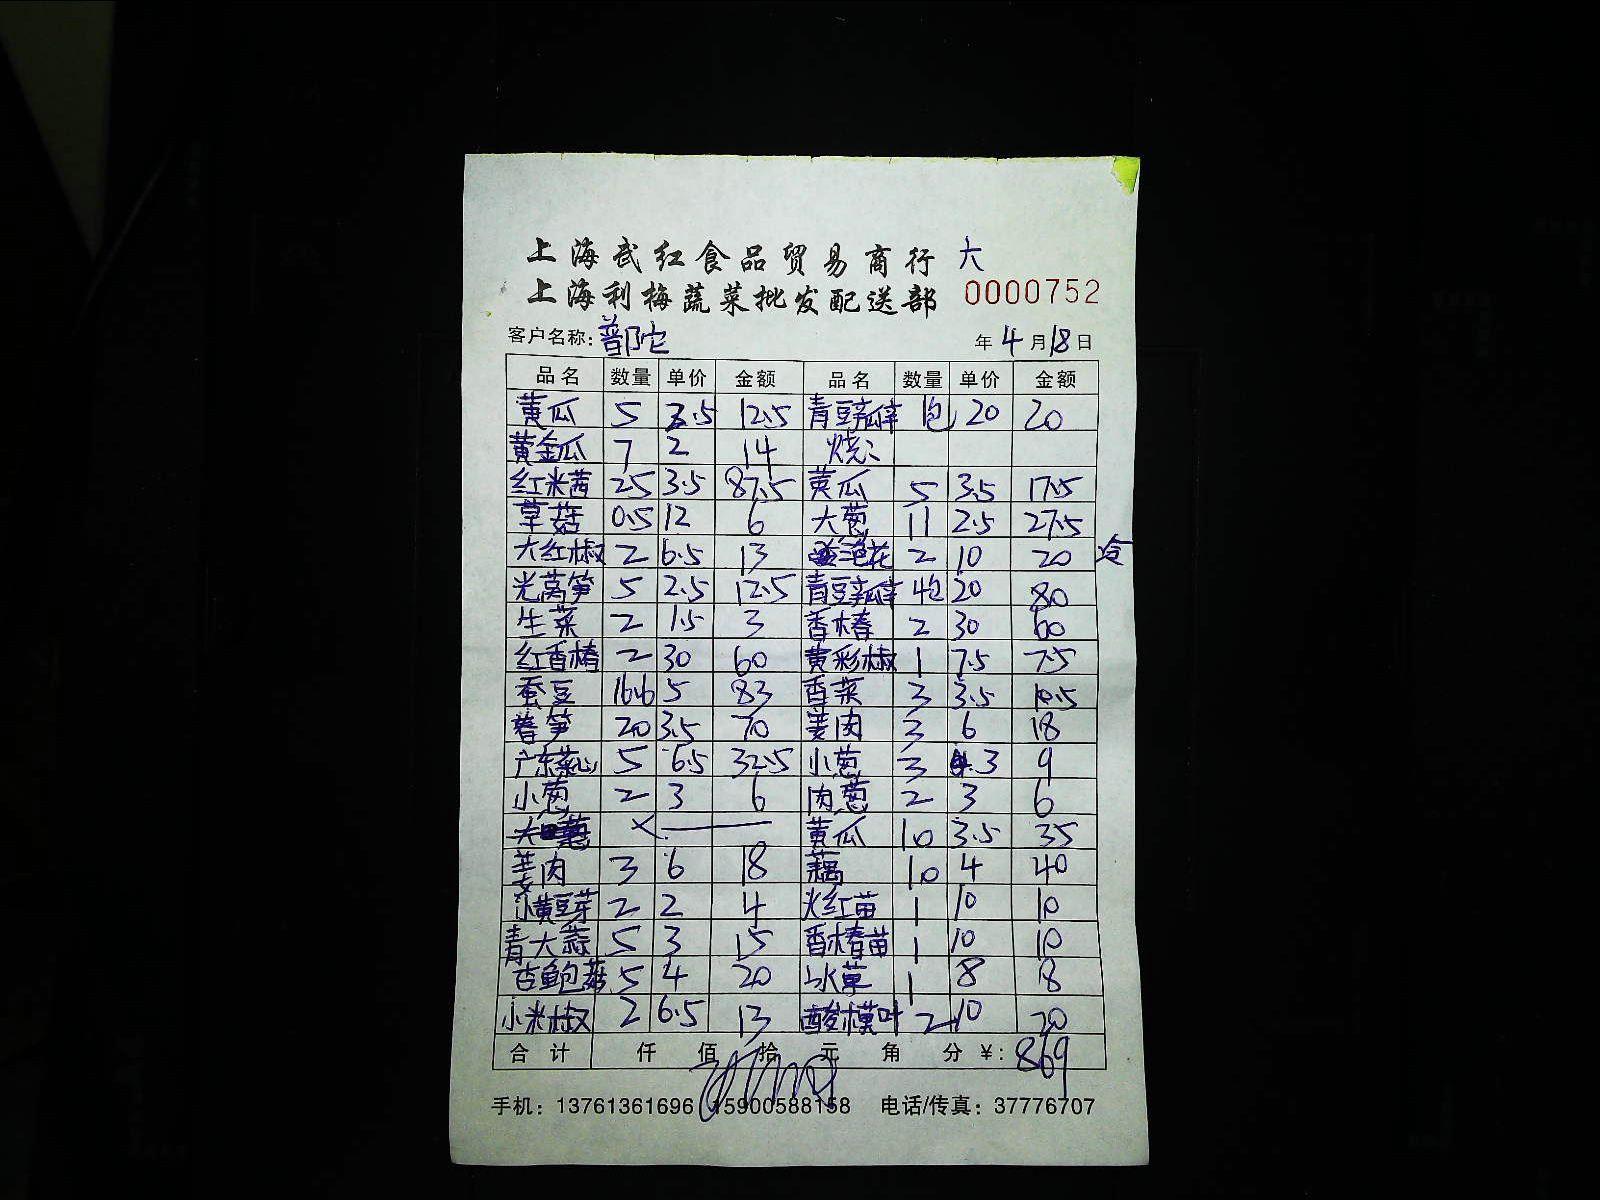 上海武红食品贸易商行 六
上海利梅蔬菜批发配送部 0000752
客户名称: 普陀 年 4 月 18 日
品名 数量 单价 金额 品名 数量 单价 金额
黄瓜 5 2.5 12.5 青豆瓣 1包 20 20
黄金瓜 7 2 14 烧:
红米苋 25 3.5 87.5 黄瓜 5 3.5 17.5
草菇 0.5 12 6 大葱 11 2.5 27.5
大红椒 2 6.5 13 三色花 2 10 20 冷
光莴笋 5 2.5 12.5 青豆瓣 4包 20 80
生菜 2 1.5 3 香椿 2 30 60
红香椿 2 30 60 黄彩椒 1 7.5 7.5
蚕豆 16.6 5 83 香菜 3 3.5 10.5
春笋 20 3.5 70 姜肉 3 6 18
广东菜心 5 6.5 32.5 小葱 3 3 9
小葱 2 3 6 肉葱 2 3 6
黄瓜 10 3.5 35
姜肉 3 6 18 藕 10 4 40
小黄豆芽 2 2 4 火红苗 1 10 10
青大蒜 5 3 15 香椿苗 1 10 10
杏鲍菇 5 4 20 冰草 1 8 8
小米椒 2 6.5 13 酸模叶 2 10 20
合计 仟 佰 拾 元 角 分 ¥: 869
手机: 13761361696 15900588158 电话/传真: 37776707